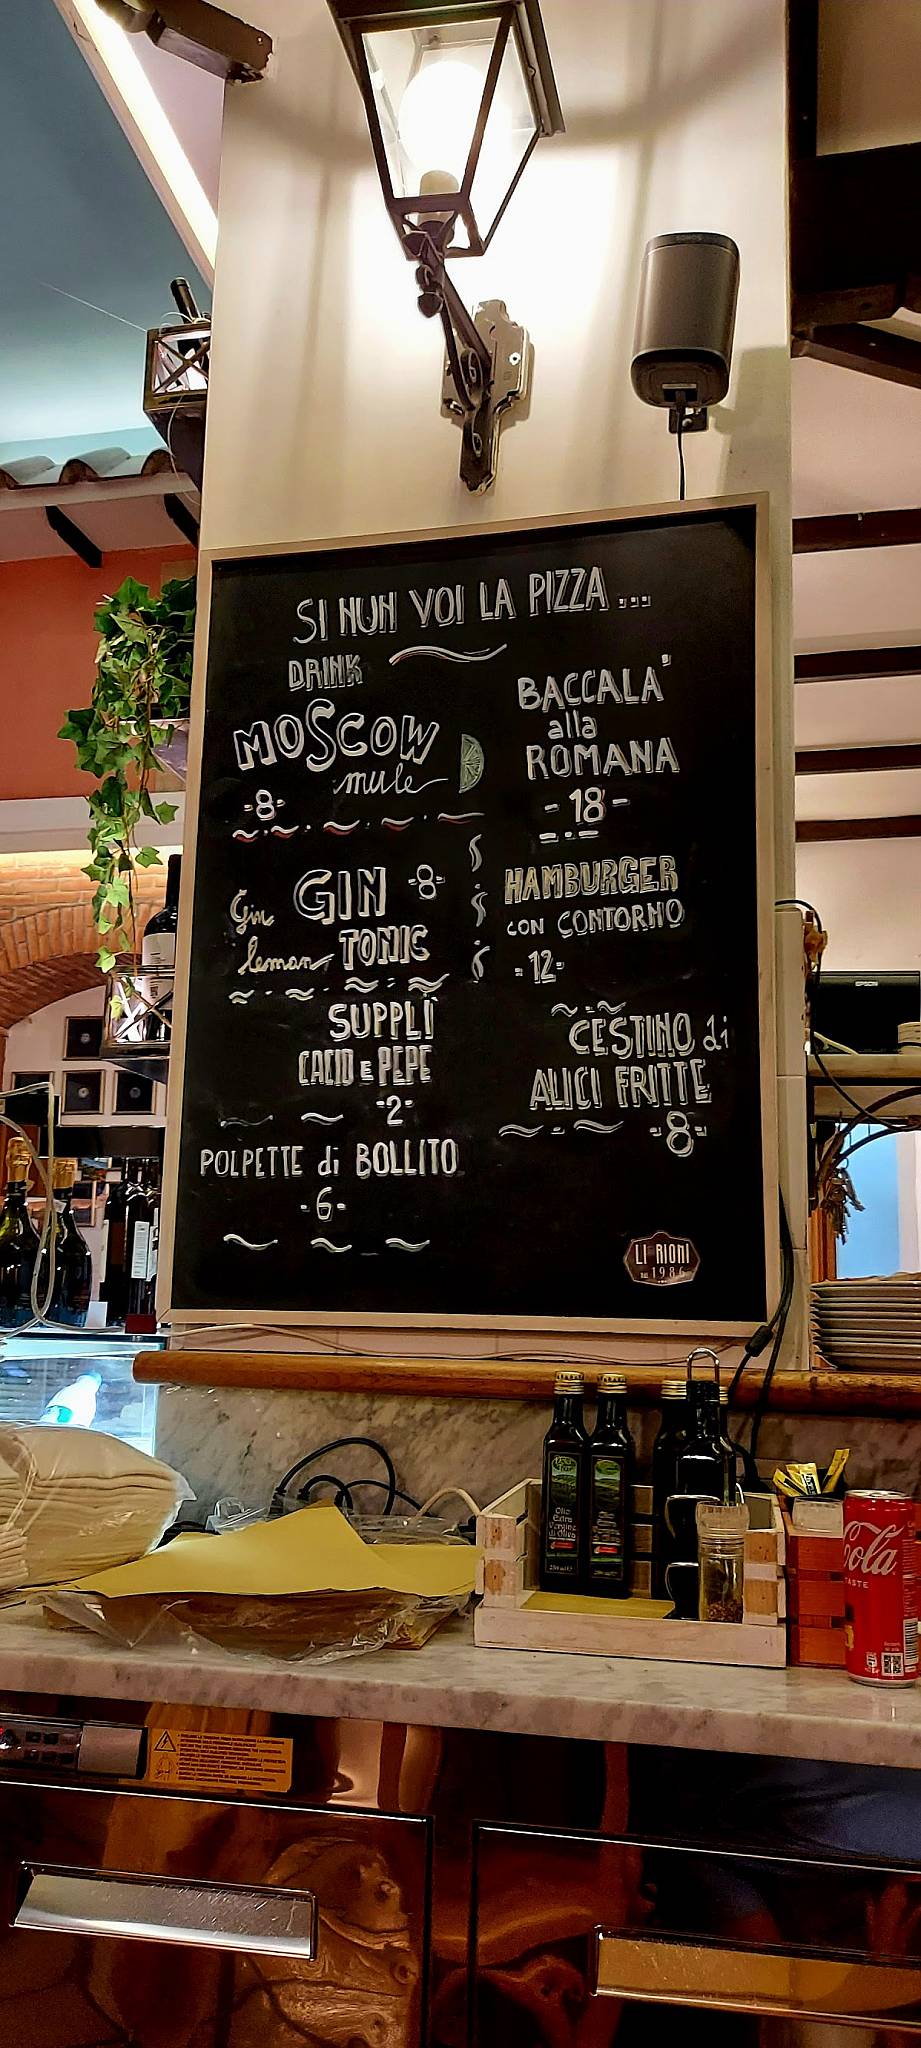 SI NUN VOI LA PIZZA...
DRINK
MOSCOW
mule
-8-
GIN -8-
Gin
lemon TONIC
SUPPLÌ
CACIO E PEPE
-2-
POLPETTE di BOLLITO
-6-
BACCALA'
alla
ROMANA
-18-
HAMBURGER
CON CONTORNO
-12-
CESTINO di
ALICI FRITTE
-8-
LI RIONI
1986
EPSON
Olio
Extra
Vergine
di Oliva
Cola
TASTE